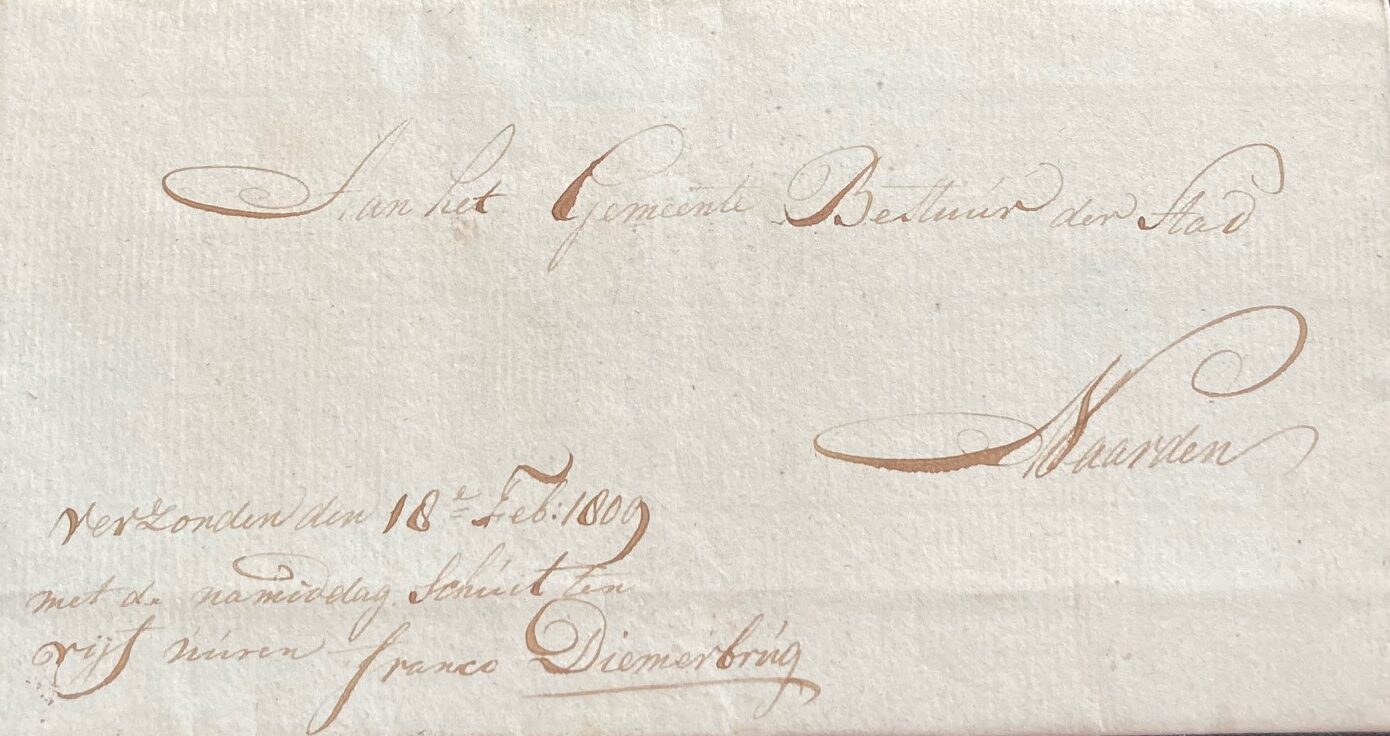 Aan het Gemeente Bestuur der Stad
Naarden
verzonden den 18e Feb: 1809
met de namiddag Schuit ten
vijf uuren franco Diemerbrug